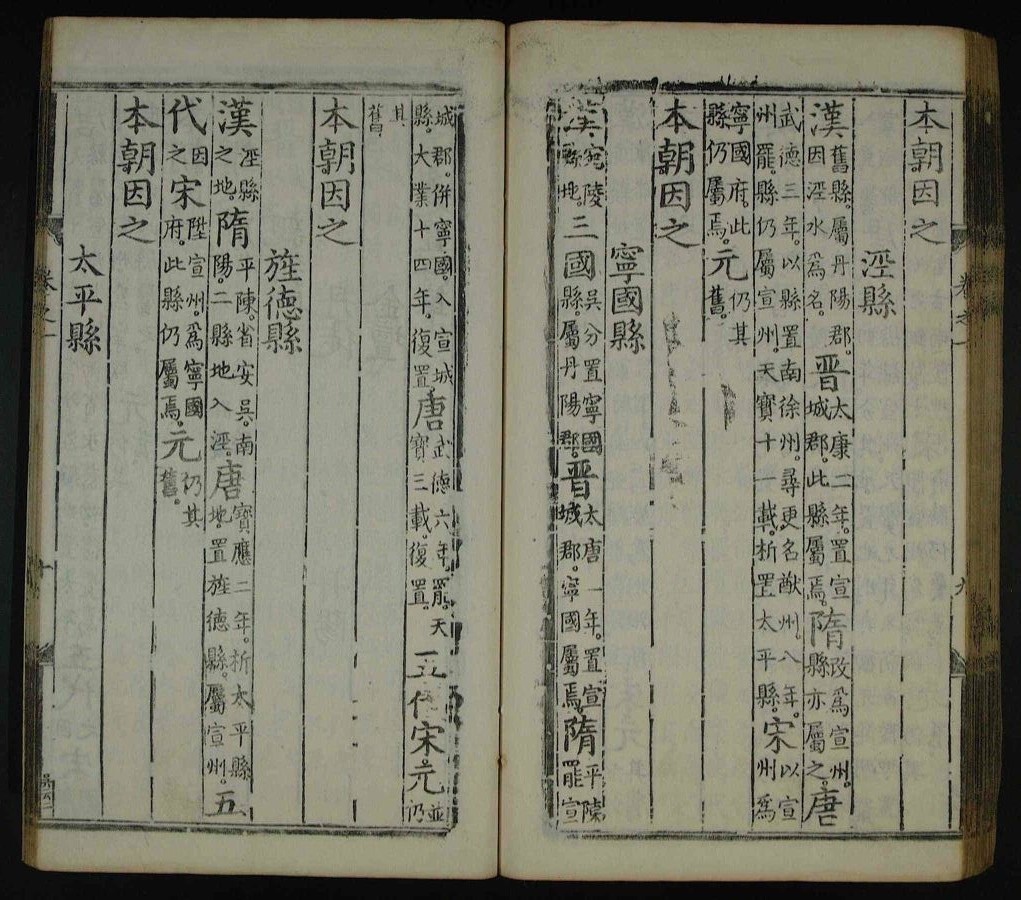 卷之一 九
本朝因之
涇縣
漢舊縣。屬丹陽郡。因涇水爲名。晋太康二年。置宣城郡。此縣屬焉。隋改爲宣州。縣亦屬之。唐
武德三年。以縣置南徐州。尋更名猷州。八年。州罷。縣仍屬宣州。天寶十載。析置太平縣。宋以宣州爲
寧國府。此縣仍屬焉。元仍其舊。
本朝因之
寧國縣
漢宛陵縣地。三國吳分置寧國縣。屬丹陽郡。晋太唐一年。置宣城郡。寧國屬焉。隋平陳。罷宣
城郡。併寧國。入宣城縣。大業十四年。復置。唐武德六年罷。天寶三載。復置。五代宋元並仍
其舊
本朝因之
旌德縣
漢涇縣之地。隋平陳。省安吳。南陽。二縣地入涇。唐寶應二年。析太平縣地。置旌德縣。屬宣州。五
代因之宋陞宣州。爲寧國府。此縣仍屬焉。元仍其舊。
本朝因之
太平縣
卷之一